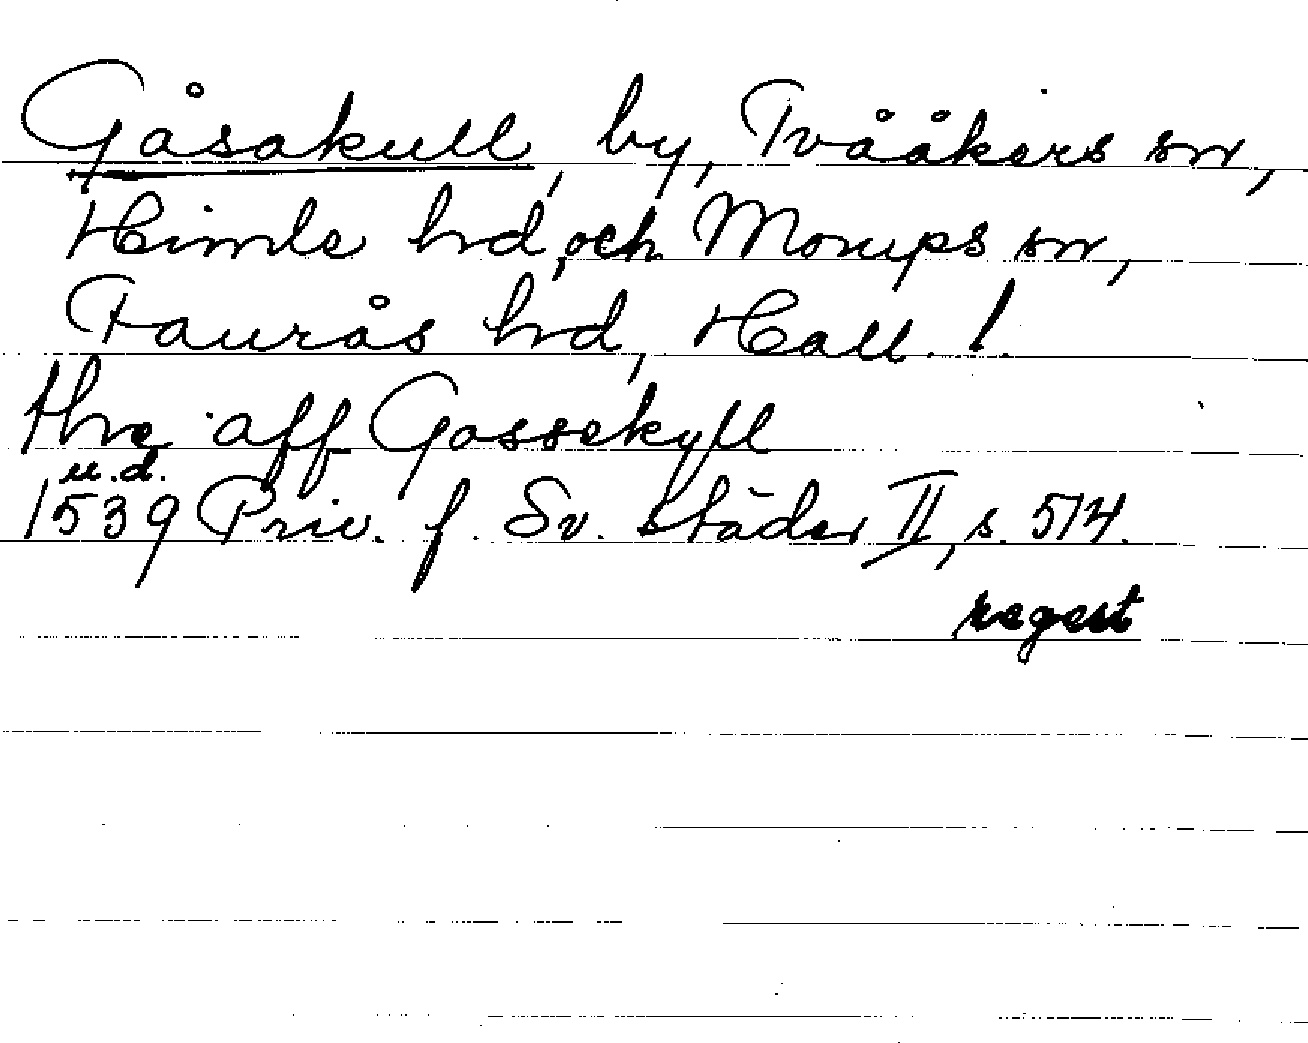 Gåsakull, by, Tvååkers sn,
Himle hrd, och Morups sn,
Faurås hrd, Hall. l.
Hre aff Gassekyll
u.d.
1539 Priv. f. Sv. städer II, s. 514.
regest